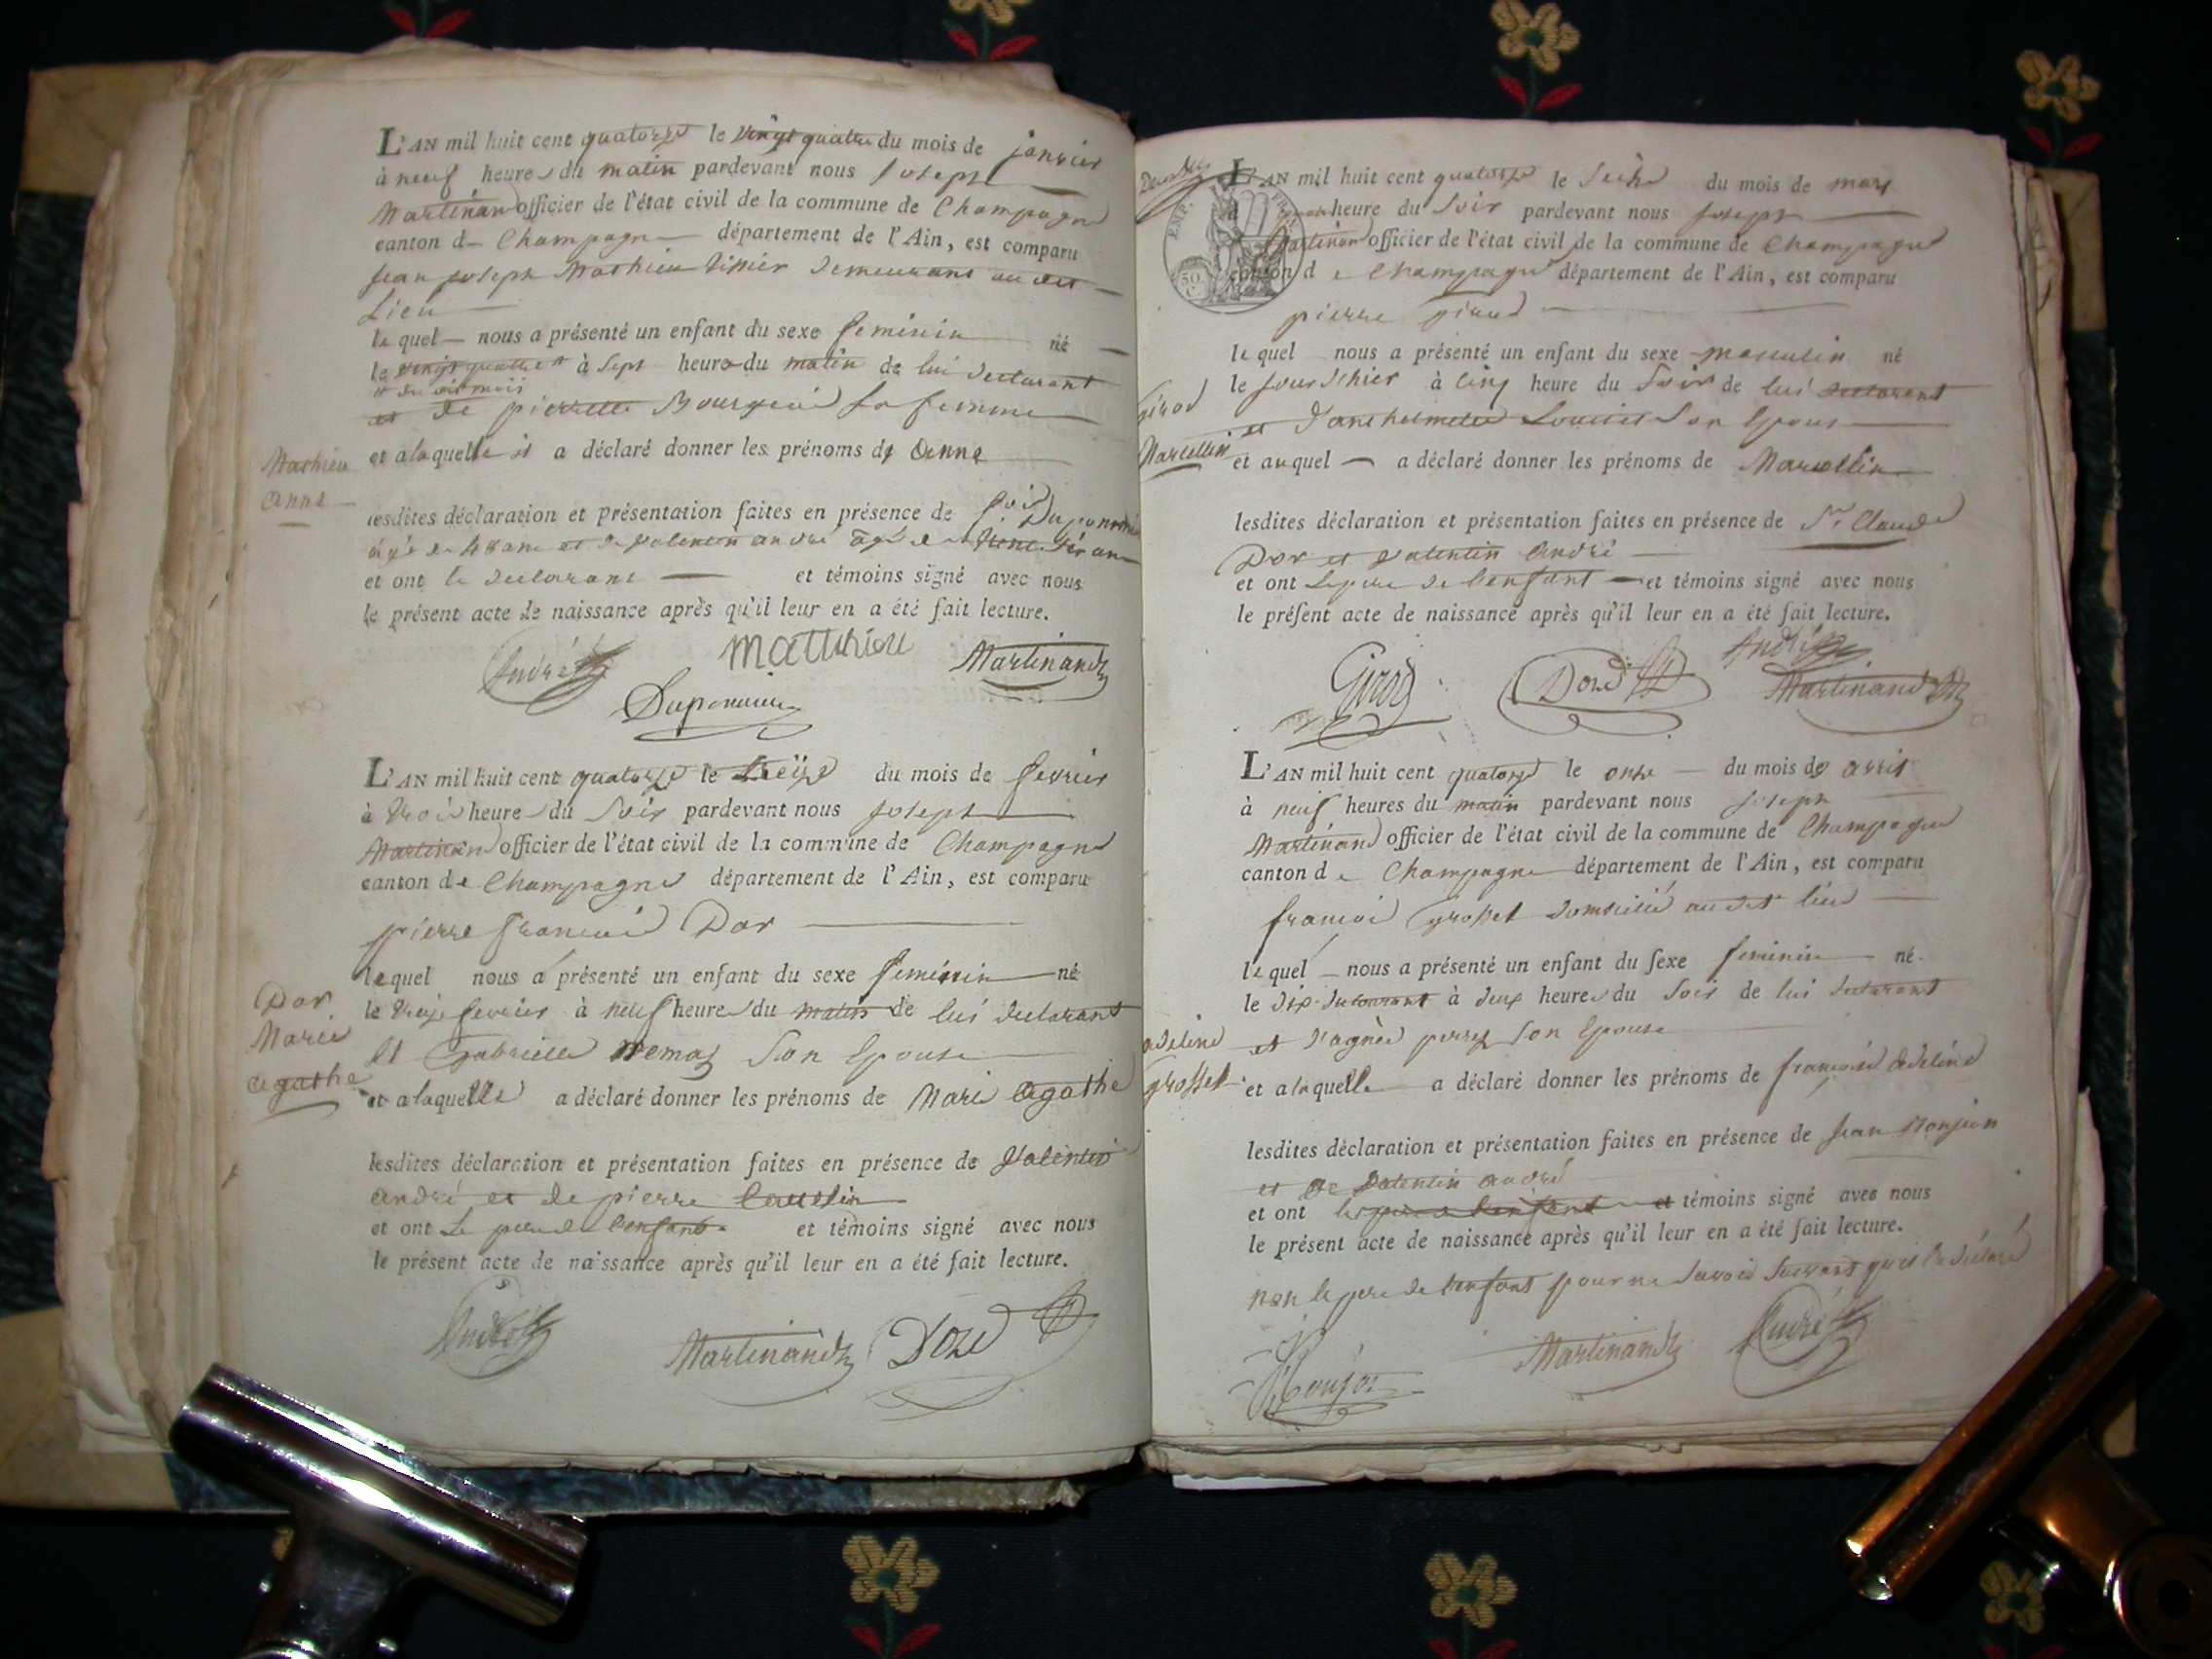 L'AN mil huit cent quatorze le vingt quatre du mois de janvier
à neuf heures du matin pardevant nous Joseph
Martinand officier de l'état civil de la commune de Champagne
canton de Champagne département de l'Ain, est comparu
Jean Joseph Mathieu demeurant au dit
Lieu
lequel nous a présenté un enfant du sexe feminin né
le vingt quatre à sept heure du matin de lui declarant
du dit mois
et de pierrette Bourgeois sa femme
Mathieu
anne
et a laquelle il a déclaré donner les prénoms de anne
lesdites déclaration et présentation faites en présence de
âgé de 48 ans et de valentin andré âgé de ans
et ont le declarant et témoins signé avec nous
le présent acte de naissance après qu'il leur en a été fait lecture.
André
Matthieu
Martinand
L'AN mil huit cent quatorze le treize du mois de fevrier
à trois heures du soir pardevant nous joseph
Martinand officier de l'état civil de la commune de Champagne
canton de Champagne département de l'Ain, est comparu
pierre françois Dor
lequel nous a présenté un enfant du sexe feminin né
Dor
Marie
agathe
le treize fevrier à neuf heures du matin de lui declarant
et Gabrielle son epouse
et a laquelle a déclaré donner les prénoms de Marie agathe
lesdites déclaration et présentation faites en présence de Valentin
andré et de pierre
et ont le pere de l'enfant et témoins signé avec nous
le présent acte de naissance après qu'il leur en a été fait lecture.
André
Martinand
L'AN mil huit cent quatorze le seize du mois de mars
heure du soir pardevant nous joseph
Martinand officier de l'état civil de la commune de Champagne
canton de Champagne département de l'Ain, est comparu
EMP. FR.
50
C.
pierre girod
lequel nous a présenté un enfant du sexe masculin né
Girod
Marcellin
le jour d'hier à cinq heure du soir de lui declarant
et d'anthelmette Louise son epouse
et auquel a déclaré donner les prénoms de Marcellin
lesdites déclaration et présentation faites en présence de Sr. Claude
Dor et valentin andré
et ont le pere de l'enfant et témoins signé avec nous
le présent acte de naissance après qu'il leur en a été fait lecture.
Girod
André
Martinand
L'AN mil huit cent quatorze le onze du mois de avril
à neuf heures du matin pardevant nous joseph
Martinand officier de l'état civil de la commune de Champagne
canton de Champagne département de l'Ain, est comparu
françois grosset domicilié au dit lieu
lequel nous a présenté un enfant du sexe feminin né
le dix du courant à deux heures du soir de lui declarant
adeline
grosset
et d'agnès son epouse
et a laquelle a déclaré donner les prénoms de françoise adeline
lesdites déclaration et présentation faites en présence de jean
et de valentin andré
et ont les et témoins signé avec nous
le présent acte de naissance après qu'il leur en a été fait lecture.
non le pere de l'enfant pour ne savoir suivant qu'il l'a déclaré
Martinand
André